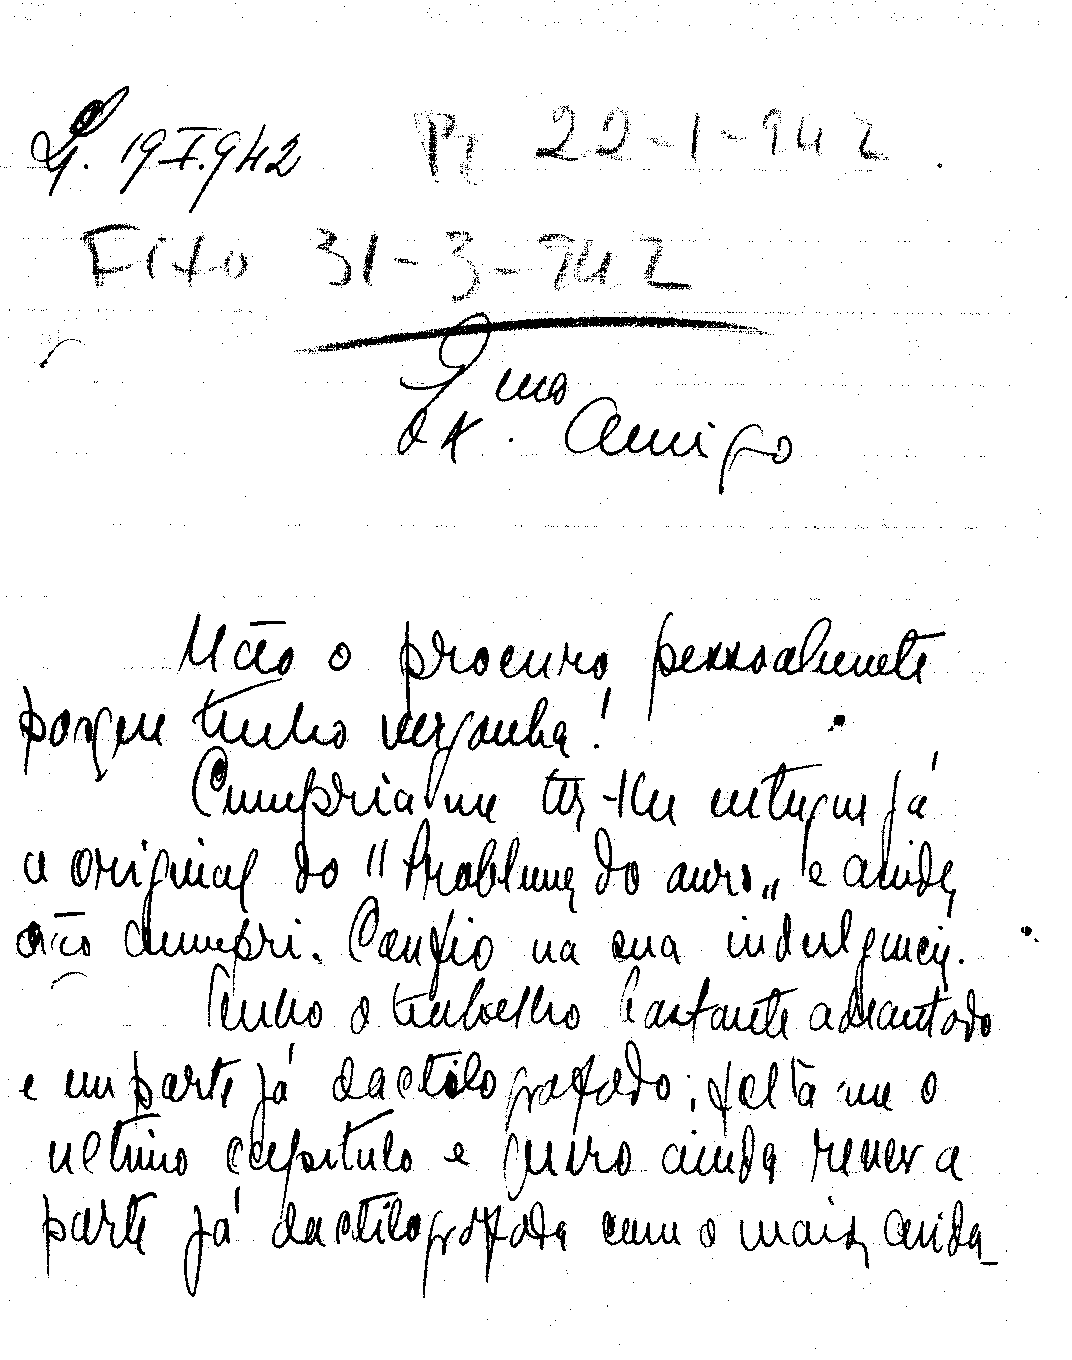 L. 19-I-942 Pr 22-1-942
Fito 31-3-942
Exmo. Amigo
Não o procuro pessoalmente
porque tenho vergonha!
Cumpria-me ter-lhe entregue já
o original do "Problema do ouro„ e ainda
não cumpri. Confio na sua indulgencia.
Tenho o trabalho bastante adeantado
e em parte já dactilografado; falta-me o
ultimo capitulo e quero ainda rever a
parte já dactilografada com o mais, ainda-